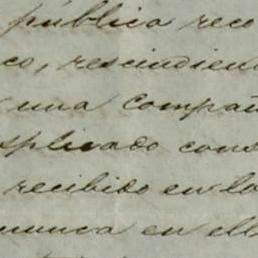 pública reco
co, rescindien
una compañ
splicado cons
recibido en lo
nunca en ell